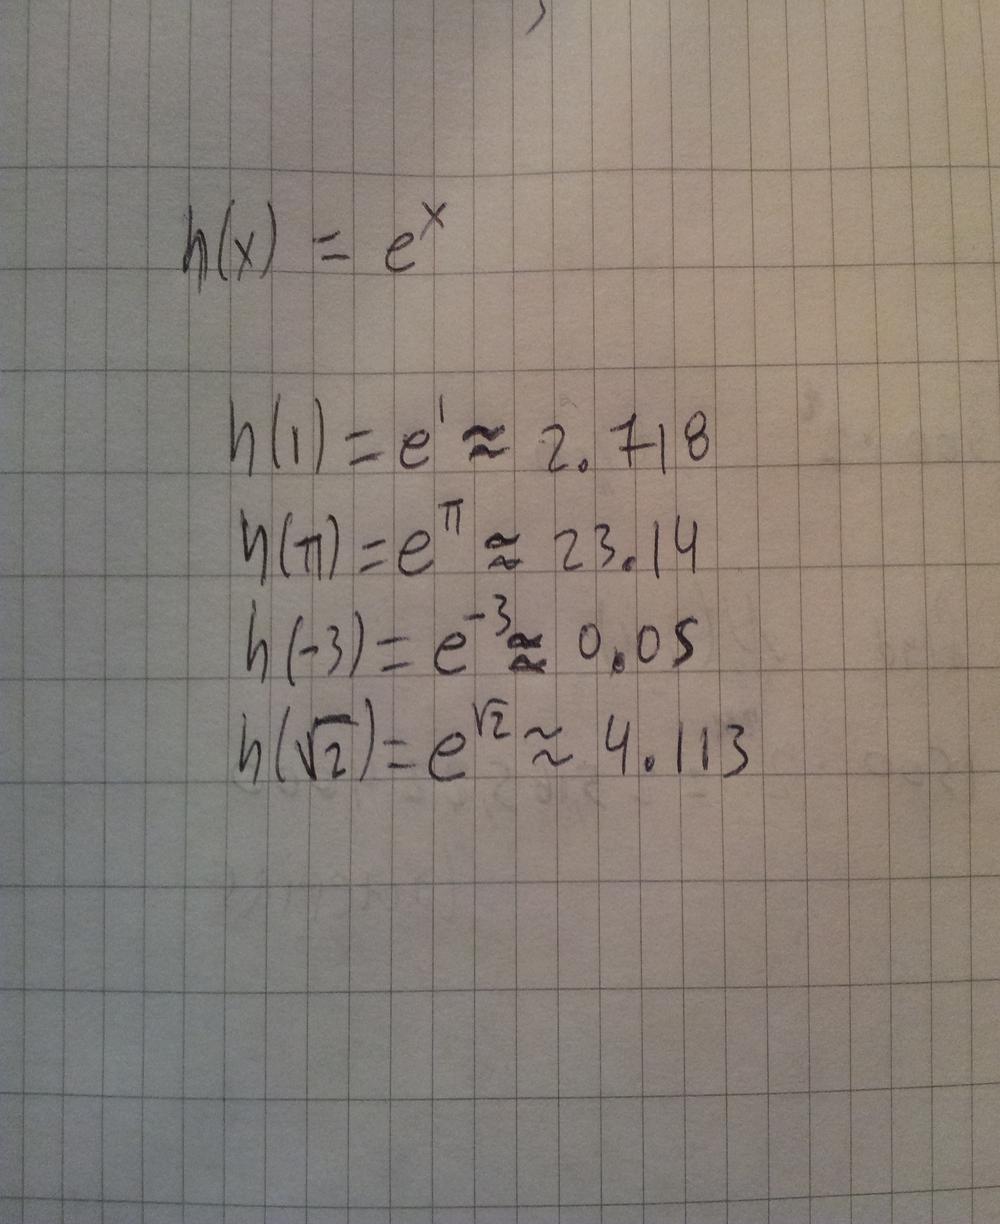 h(x) = e^x
h(1) = e^1 ≈ 2.718
h(π) = e^π ≈ 23.14
h(-3) = e^-3 ≈ 0.05
h(√2) = e^√2 ≈ 4.113